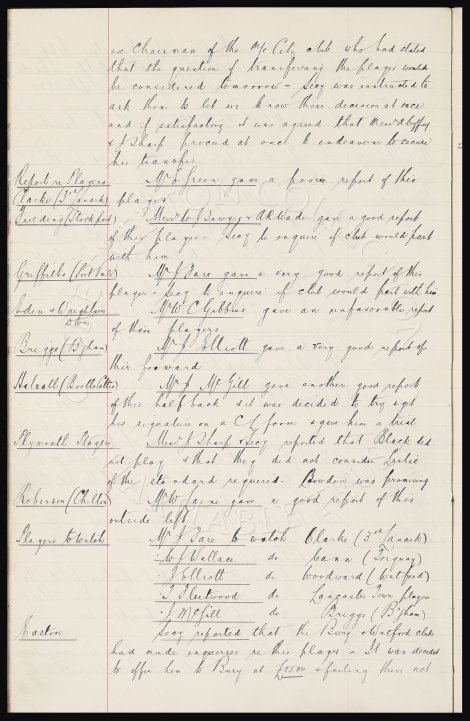 ex Chairman of the M/c City club who had stated
that the question of transferring the player would
be considered tomorrow - Secy was instructed to
ask them to let us know their decision at once
and if satisfactory it was agreed that Messrs
& J Sharp proceed at once to endeavour to secure
his transfer
Reports re Players Mr E Green gave a poor report of this
Clarke (3rd Lanark) player
(Stockport) Messrs W J Sawyer & A R Wade gave a good report
of this player - Secy to enquire if club would part
with him
Griffiths (Port Vale) Mr J Fare gave a very good report of this
player - Secy to enquire if club would part with him
Eden & Wrightson Mr W C Gibbins gave an unfavorable report
D'ton of these players
Briggs (B'pham) Mr J Elliott gave a very good report of
this forward
Halsall (Bootle Celtic) Mr J McGill gave another good report
of this half back & it was decided to try & get
his signature on a C.L. form & give him a trial
Plymouth Players Messrs J Sharp & Secy reported that Black did
not play & that they did not consider Leslie
of the standard required. Bowden was promising
Robinson (Chilton) Mr W Caine gave a good report of this
outside left
Players to Watch Mr J Fare to watch Clarke (3rd Lanark)
" W J Wallace do Cann (Torquay)
" J Elliott do Woodward (Watford)
" T Fleetwood do Lancaster Town players
" J McGill do Briggs (B'pham)
Easton Secy reported that the Bury & Watford clubs
had made enquiries re this player - It was decided
to offer him to Bury at £1500 & failing their not